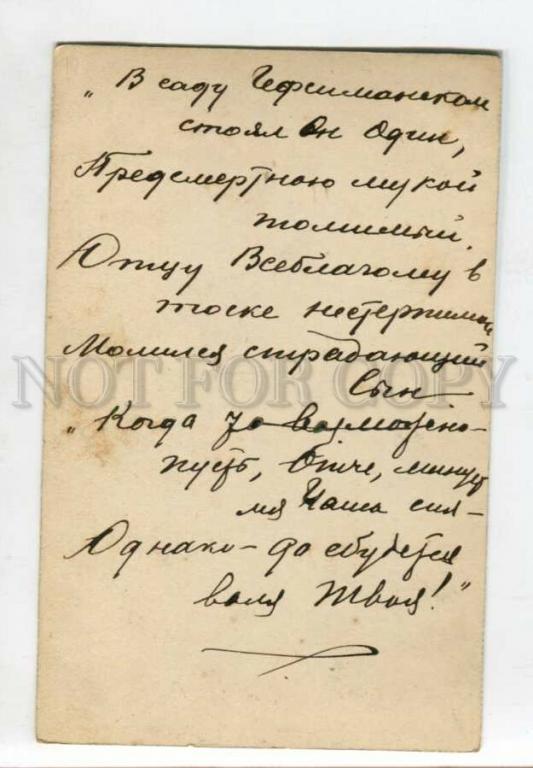 „В саду Гефсиманском
стоял Он Один,
Предсмертною мукой
томимый.
Отцу Всеблагому в
тоске нестерпимой
Молился страдающий
Сын –
„Когда то возможно –
пусть, Отче, минует
мя Чаша сия –
Однако – да сбудется
воля Твоя!"
NOT FOR COPY